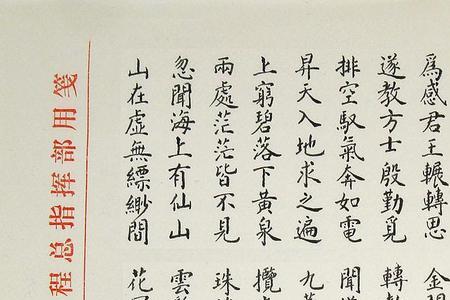 爲感君王輾轉思
遂教方士殷勤覓
排空馭氣奔如電
昇天入地求之遍
上窮碧落下黃泉
兩處茫茫皆不見
忽聞海上有仙山
山在虛無縹緲間
金
轉
聞
九
攬
珠
雲
花
程总指挥部用笺